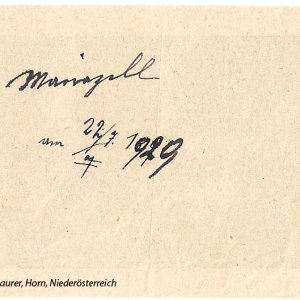 Mariazell
am 22/7. 1929
aurer, Horn, Niederösterreich